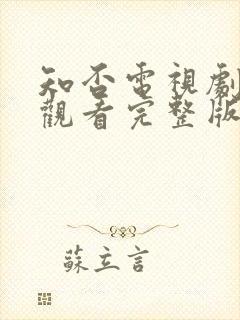 知否電視劇
觀看完整版
蘇立言